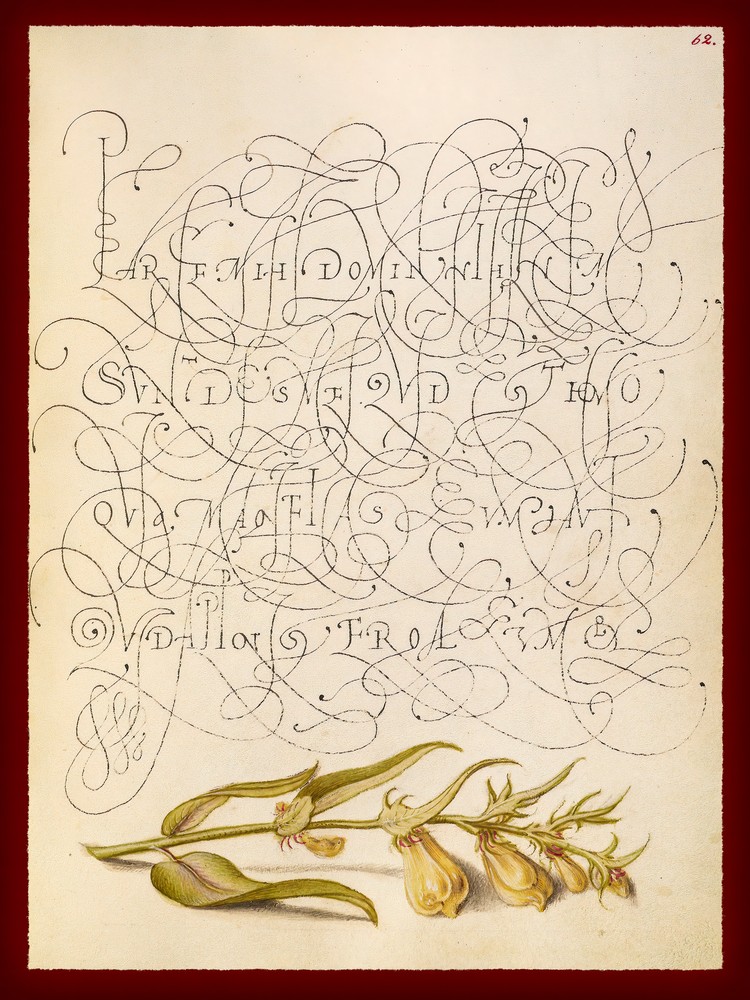 62.
PARCE MIHI DOMINE NIHIL ENIM
SVNT DIES MEI QVID EST HOMO
QVIA MAGNIFICAS EVM AVT
QVID APPONIS ERGA EVM